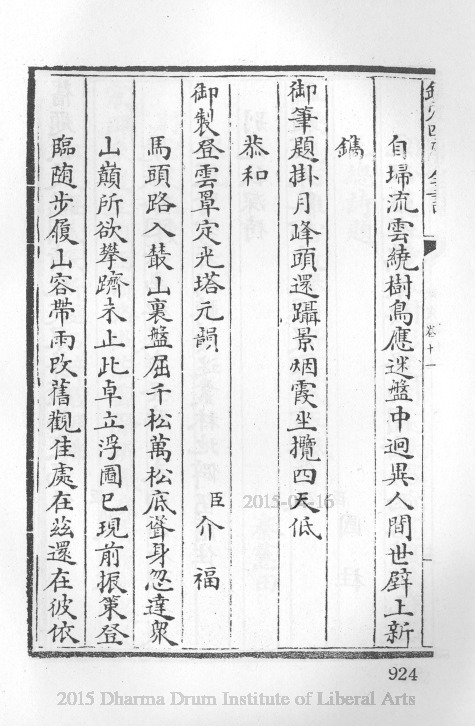 自埽流雲繞樹鳥應迷盤中迥異人間世壁上新
鐫
御筆題掛月峰頭還躡景烟霞坐攬四天低
恭和
御製登雲罩定光塔元韻
臣介福
馬頭路入叢山裏盤屈千松萬松底聳身忽達衆
山巔所欲攀躋未止此卓立浮圖已現前振策登
臨随步履山容帶雨改舊觀佳處在兹還在彼依
卷十一
924
2015 Dharma Drum Institute of Liberal Arts